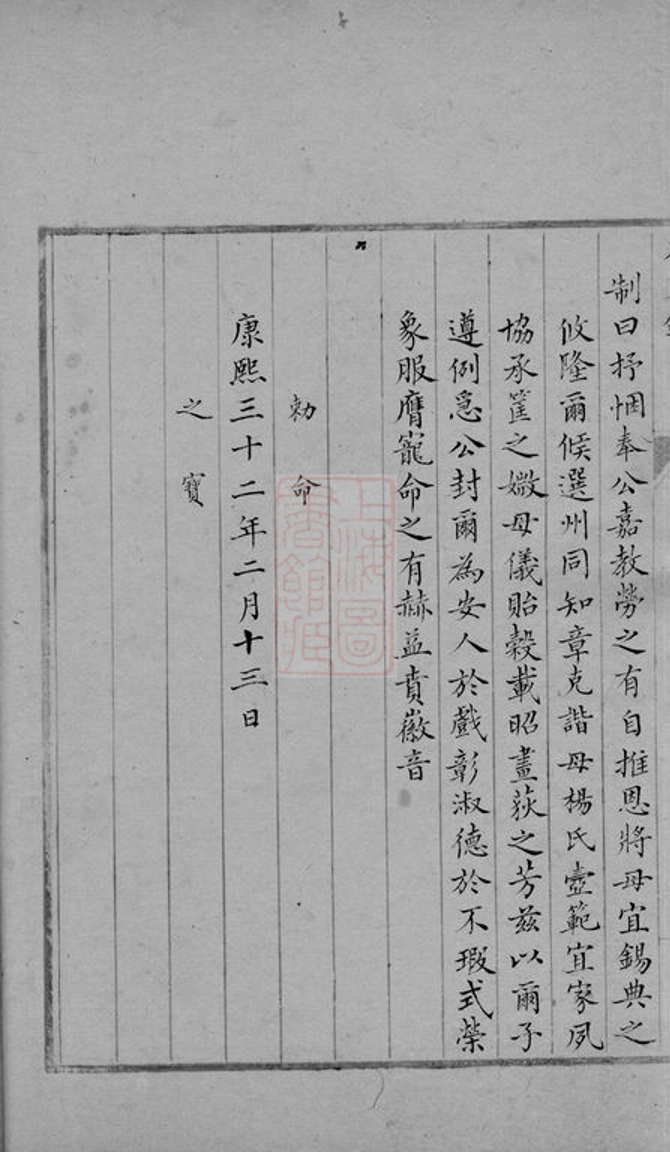 制曰抒悃奉公嘉教勞之有自推恩將母宜錫典之
攸隆爾候選州同知章克諧母楊氏壼範宜家夙
協承筐之媺母儀貽穀載昭畫荻之芳茲以爾子
遵例急公封爾為安人於戲彰淑德於不瑕式榮
象服膺寵命之有赫益賁徽音
勅命
康熙三十二年二月十三日
之寶
上海圖書館藏